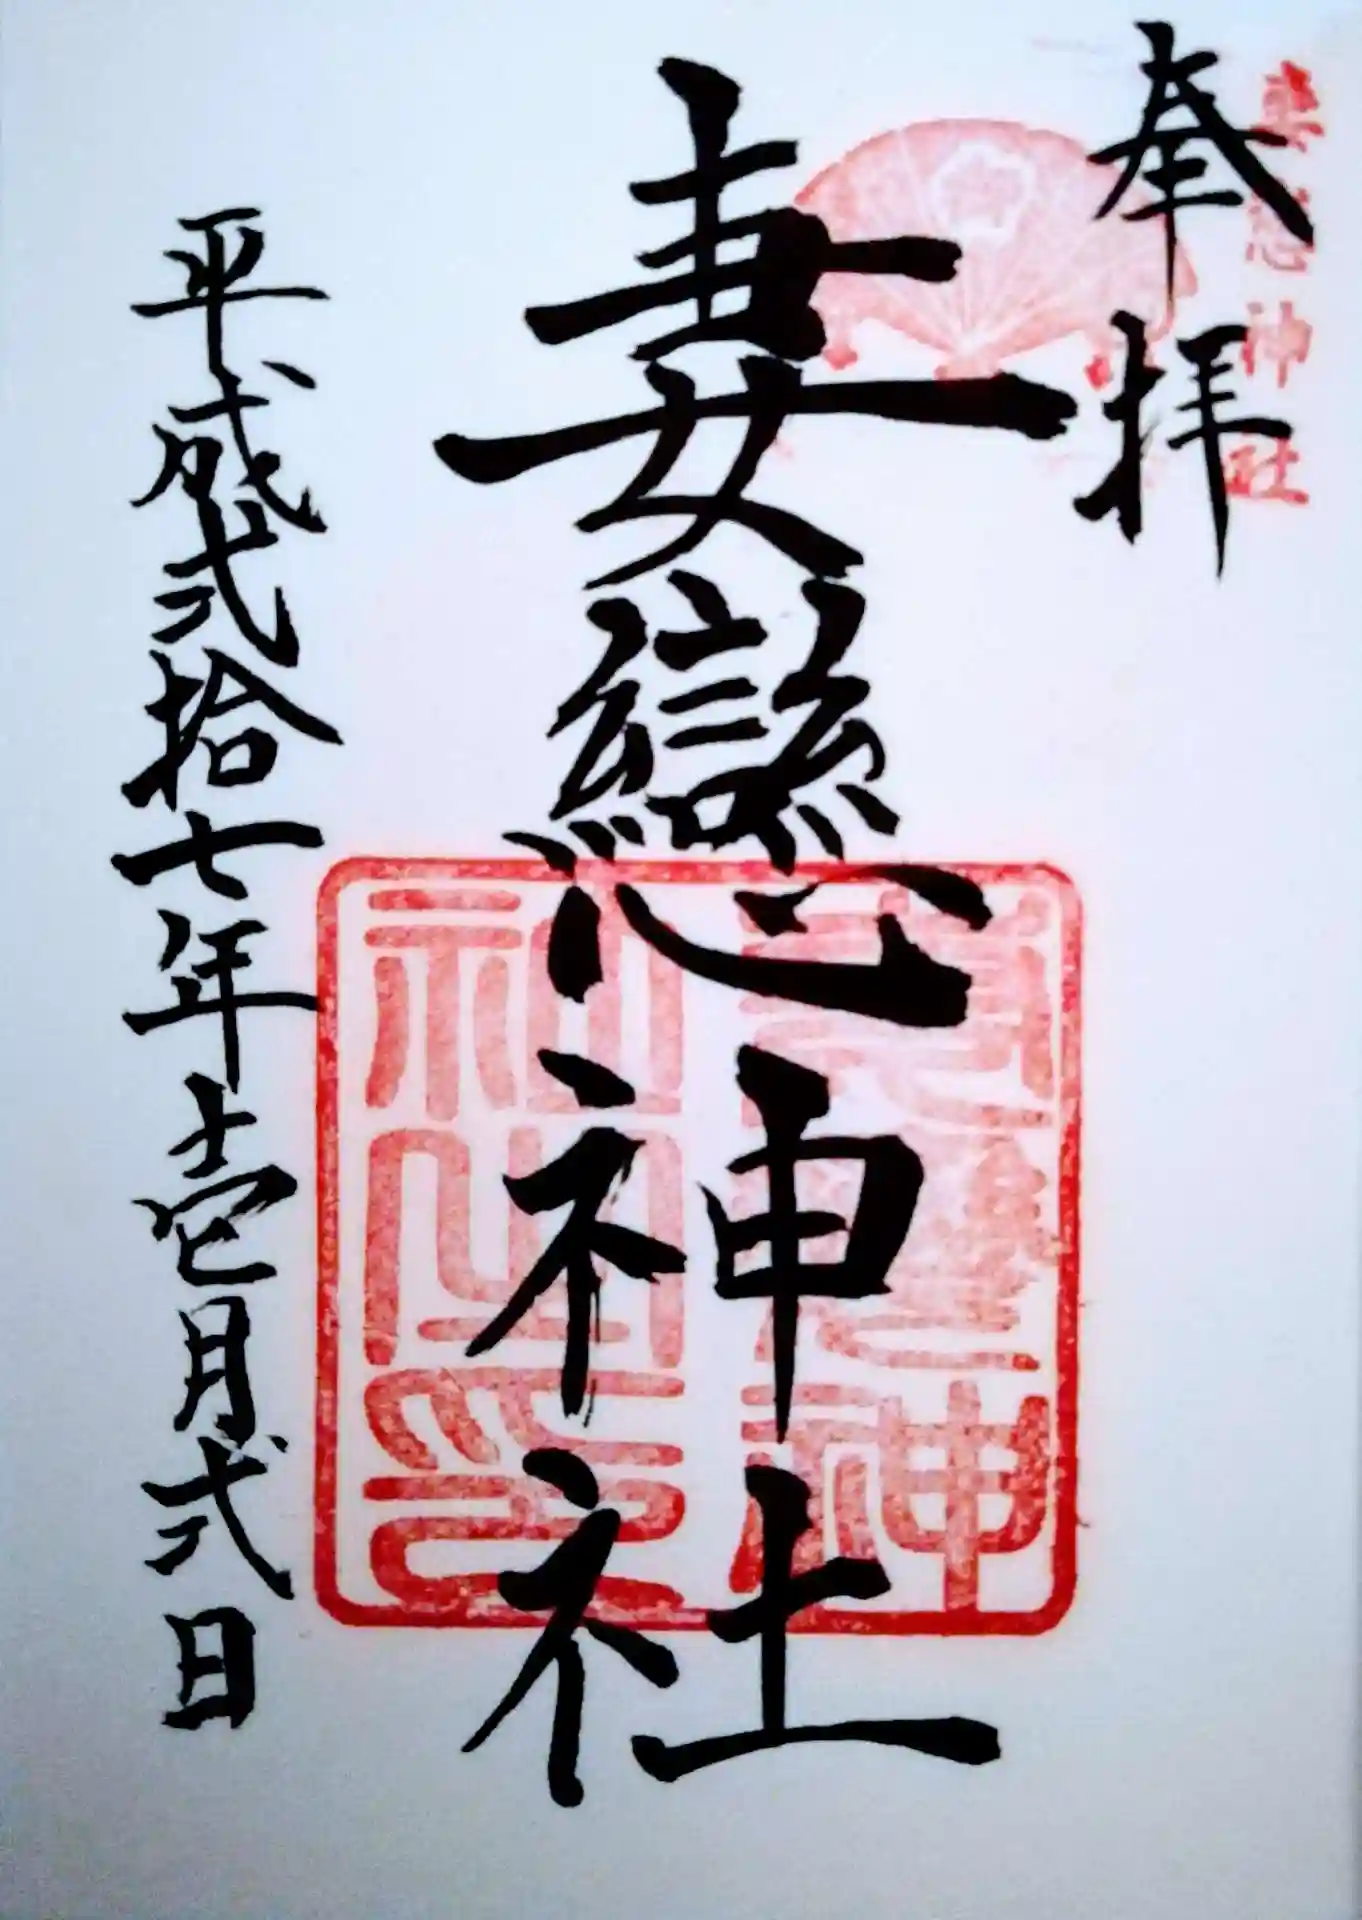 奉拝
妻戀神社
妻戀神社
妻戀神社之印
平成弐拾七年壱月弐日